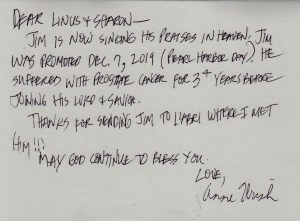 DEAR LINUS & SHARON—
JIM IS NOW SINGING HIS PRAISES IN HEAVEN. JIM
WAS PROMOTED DEC. 7, 2019 (PEARL HARBOR DAY) HE
SUFFERED WITH PROSTATE CANCER FOR 3+ YEARS BEFORE
JOINING HIS LORD & SAVIOR.
THANKS FOR SENDING JIM TO L'ABRI WHERE I MET
HIM!!!
MAY GOD CONTINUE TO BLESS YOU.
LOVE,
Anne